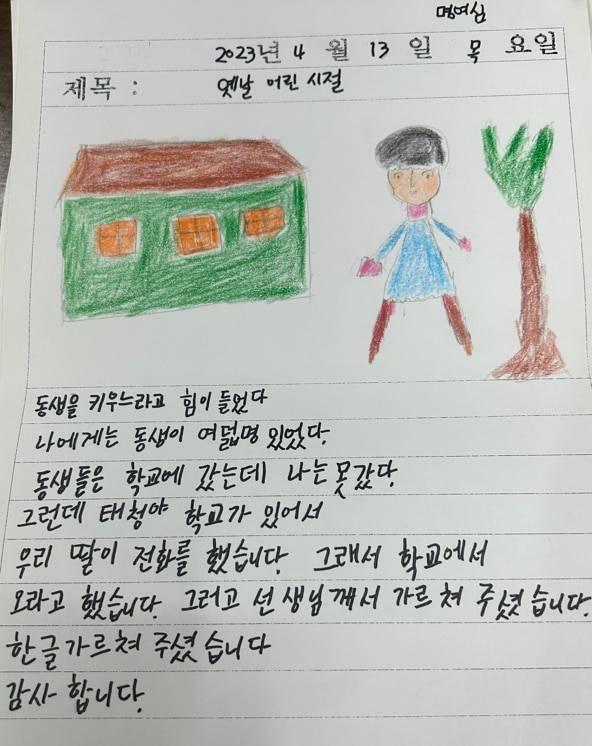 명여심
2023년 4 월 13 일 목 요일
제목 : 옛날 어린 시절
동생을 키우느라고 힘이 들었다
나에게는 동생이 여덟명 있었다.
동생들은 학교에 갔는데 나는 못갔다.
그런데 태청야 학교가 있어서
우리 딸이 전화를 했습니다. 그래서 학교에서
오라고 했습니다. 그러고 선생님께서 가르쳐 주셨습니다.
한글가르쳐 주셨습니다
감사 합니다.